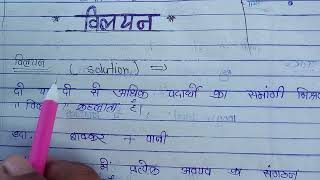 * विलयन *
विलयन (solution) =>
दो या दो से अधिक पदार्थों का समांगी
कहलाता है।
शक्कर + पानी
में प्रत्येक अवयव का संगठन